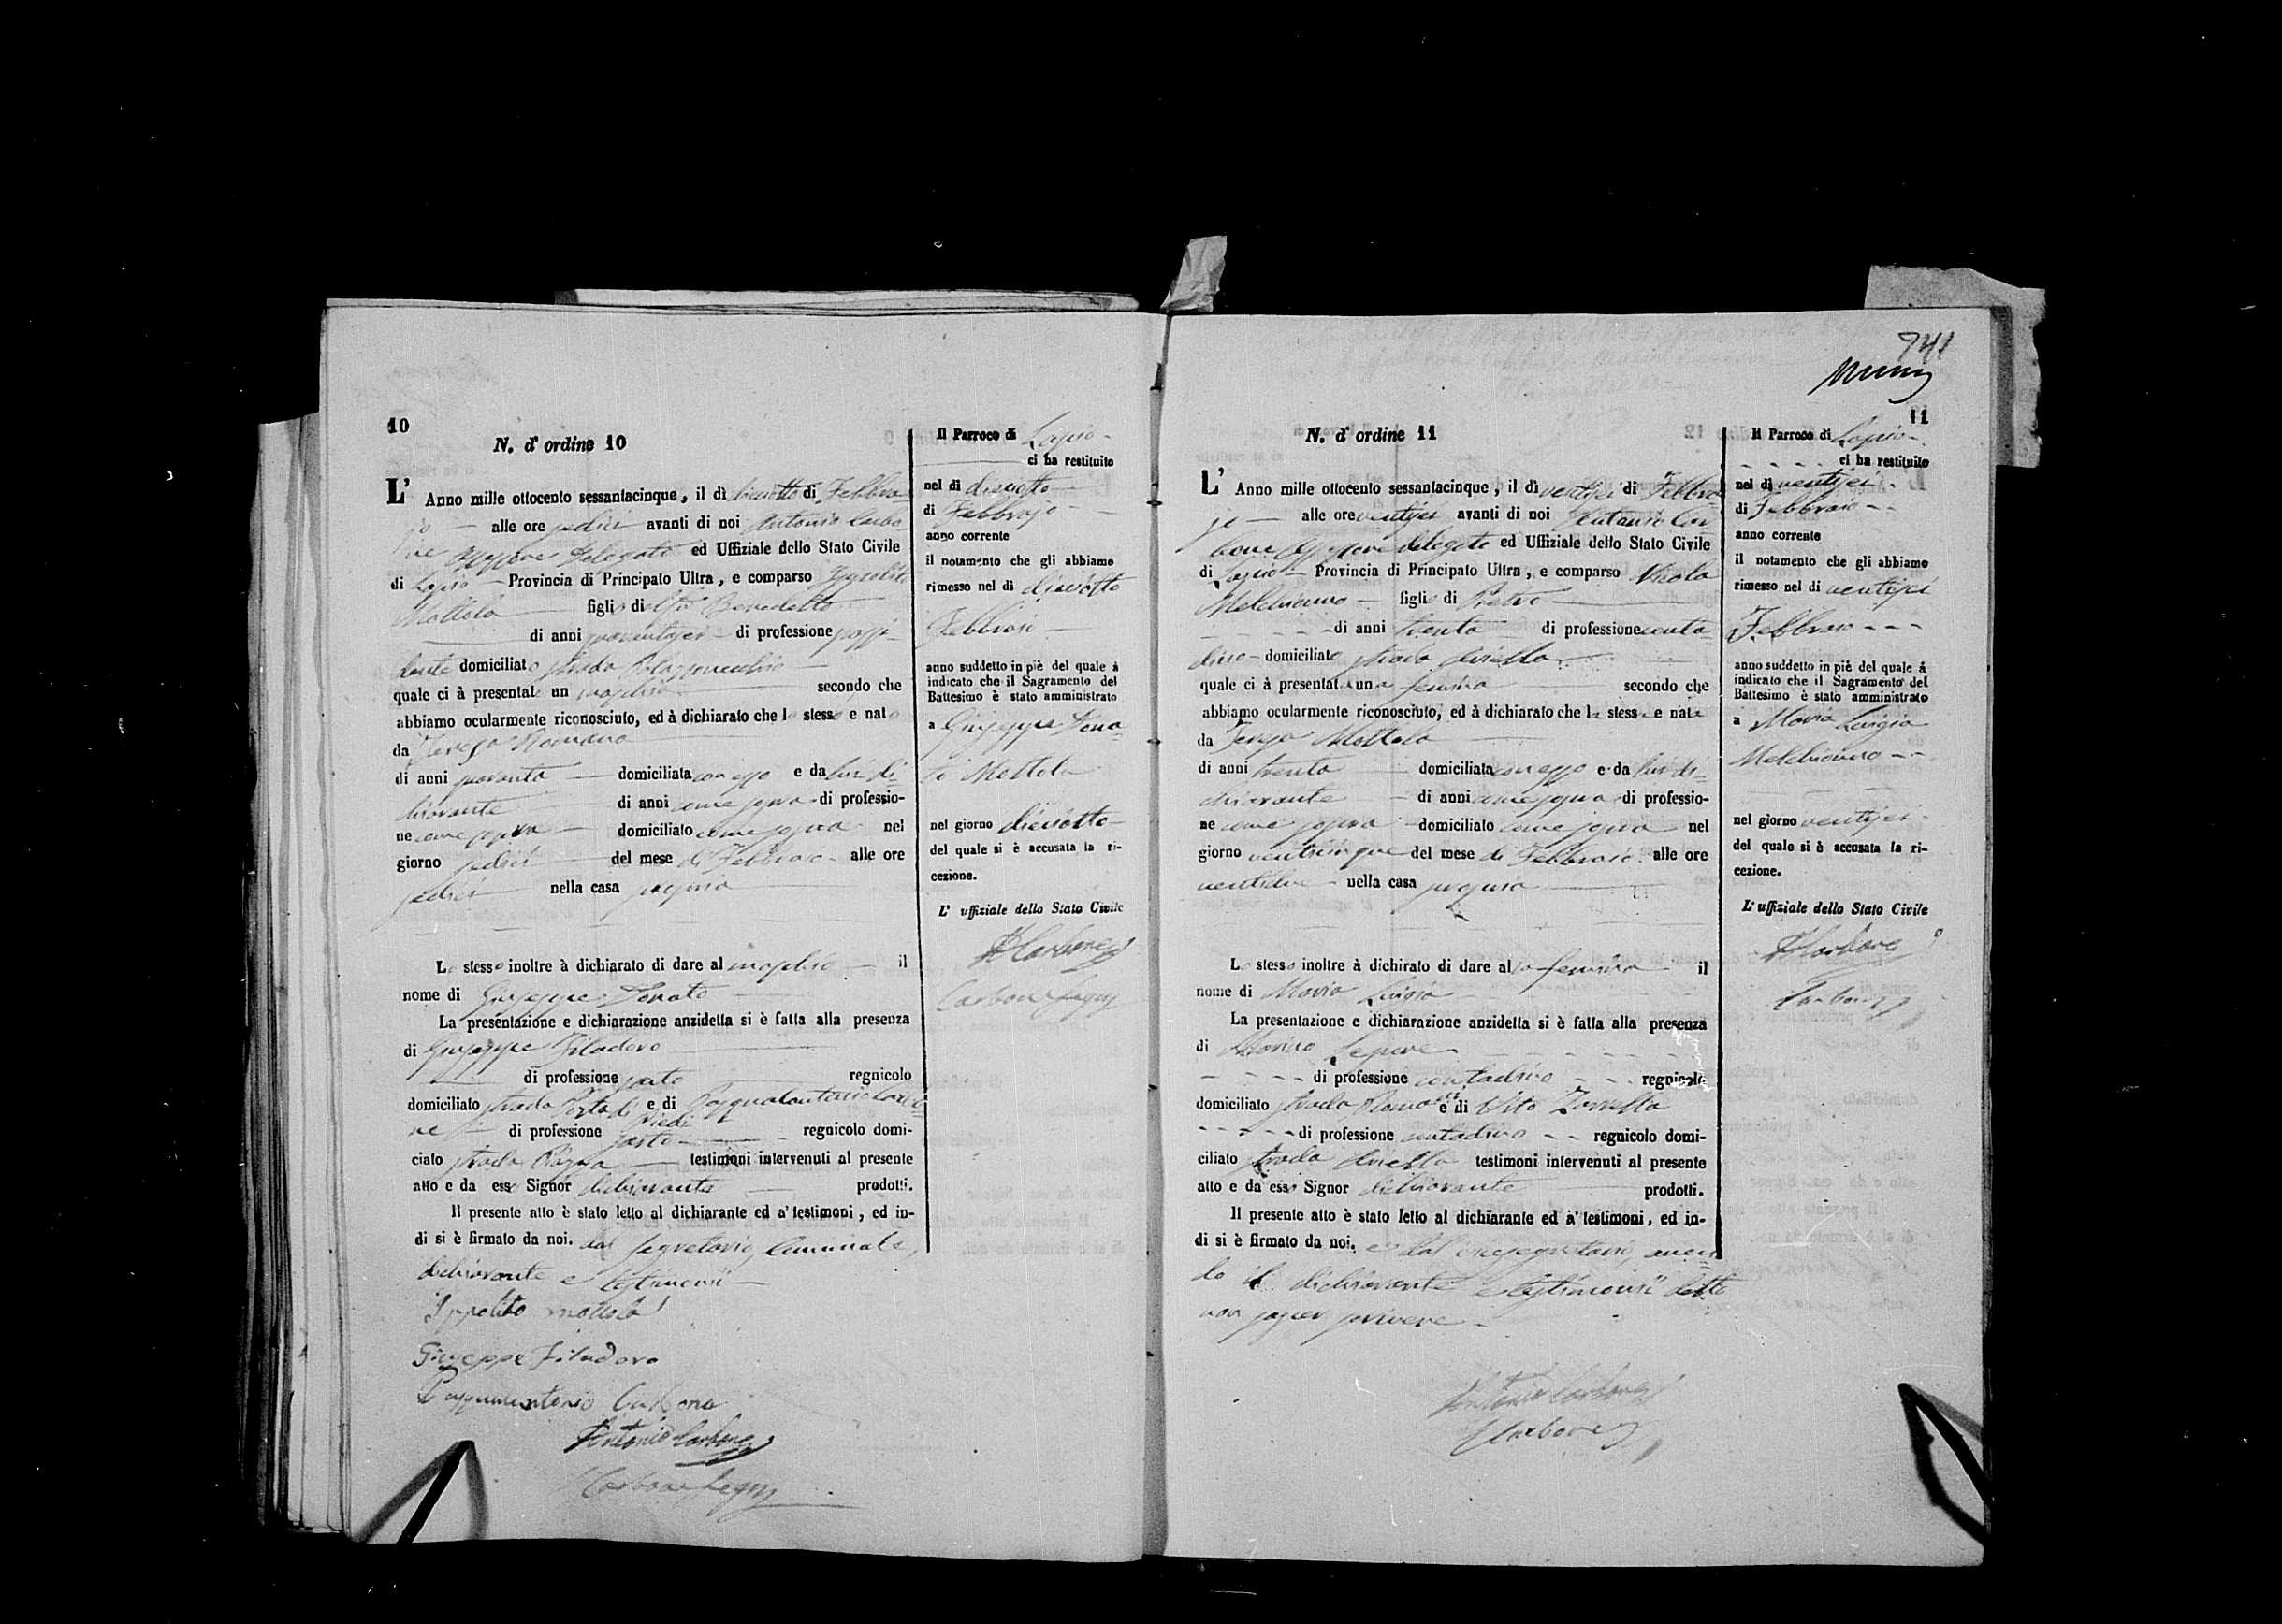 10
N. d' ordine 10
L' Anno mille ottocento sessantacinque, il dì diciotto di Febbra
jo alle ore sedici avanti di noi Antonio Carbo
ne Assessore Delegato ed Uffiziale dello Stato Civile
di Lapio Provincia di Principato Ultra, e comparso Ippolito
Mottola figlio di Benedetto
di anni quarantasei di professione possi
dente domiciliato strada Palazzovecchio
quale ci à presentato un maschio secondo che
abbiamo ocularmente riconosciuto, ed à dichiarato che lo stesso e nato
da Teresa Romano
di anni quaranta domiciliata con esso e da lui di-
chiarante di anni come sopra di professio-
ne come sopra domiciliato come sopra nel
giorno sedici del mese di Febbraio alle ore
sedici nella casa propria
Lo stesso inoltre à dichiarato di dare al maschio il
nome di Giuseppe Donato
La presentazione e dichiarazione anzidetta si è fatta alla presenza
di Giuseppe Filadoro
di professione sarto regnicolo
domiciliato strada Porta di Piedi e di Pasqualantonio Carbo
ne di professione sarto regnicolo domi-
ciato strada testimoni intervenuti al presente
atto e da esso Signor dichiarante prodotti.
Il presente atto è stato letto al dichiarante ed a' testimoni, ed in-
di si è firmato da noi. dal segretario, Comunale,
dichiarante e testimonii
Ippolito Mottola
Giuseppe Filadoro
Pasqualantonio Carbone
Antonio Carbone
Carbone Segr
Il Parroco di Lapio
ci ha restituito
nel dì diciotto
di Febbrajo
anno corrente
il notamento che gli abbiamo
rimesso nel dì diciotto
Febbraio
anno suddetto in piè del quale á
indicato che il Sagramento del
Battesimo è stato amministrato
a Giuseppe Dona-
to Mottola
nel giorno diciotto
del quale si è accusata la ri-
cezione.
L' uffiziale dello Stato Civile
A Carbone
Carbone Segr
741
11
N. d' ordine 11
L' Anno mille ottocento sessantacinque, il dì ventisei di Febbra
jo alle ore ventisei avanti di noi Antonio Car
bone Assessore delegato ed Uffiziale dello Stato Civile
di Lapio Provincia di Principato Ultra, e comparso Nicola
Melchionno figlio di Pietro
di anni trenta di professione conta
dino domiciliato strada
quale ci à presentata una femina secondo che
abbiamo ocularmente riconosciuto, ed à dichiarato che la stessa e nata
da Teresa Mottola
di anni trenta domiciliata con esso e da lui di-
chiarante di anni come sopra di professio-
ne come sopra domiciliato come sopra nel
giorno venticinque del mese di Febbraio alle ore
ventidue nella casa propria
Lo stesso inoltre à dichirato di dare alla femina il
nome di Maria Luigia
La presentazione e dichiarazione anzidetta si è fatta alla presenza
di Lepore
di professione contadino regnicolo
domiciliato strada Romani e di Vito Zarrella
di professione contadino regnicolo domi-
ciliato strada testimoni intervenuti al presente
atto e da esso Signor dichiarante prodotti.
Il presente atto è stato letto al dichiarante ed a' testimoni, ed in-
di si è firmato da noi. e dal segretario, aven
do il dichiarante e testimonii detto
non saper scrivere
Antonio Carbone
Carbone
Il Parroco di Lapio
ci ha restituito
nel dì ventisei
di Febbraio
anno corrente
il notamento che gli abbiamo
rimesso nel di ventisei
Febbraio
anno suddetto in piè del quale á
indicato che il Sagramento del
Battesimo è stato amministrato
a Maria Luigia
Melchionno
nel giorno ventisei
del quale si è accusata la ri-
cezione.
L' uffiziale dello Stato Civile
A Carbone
Carbone